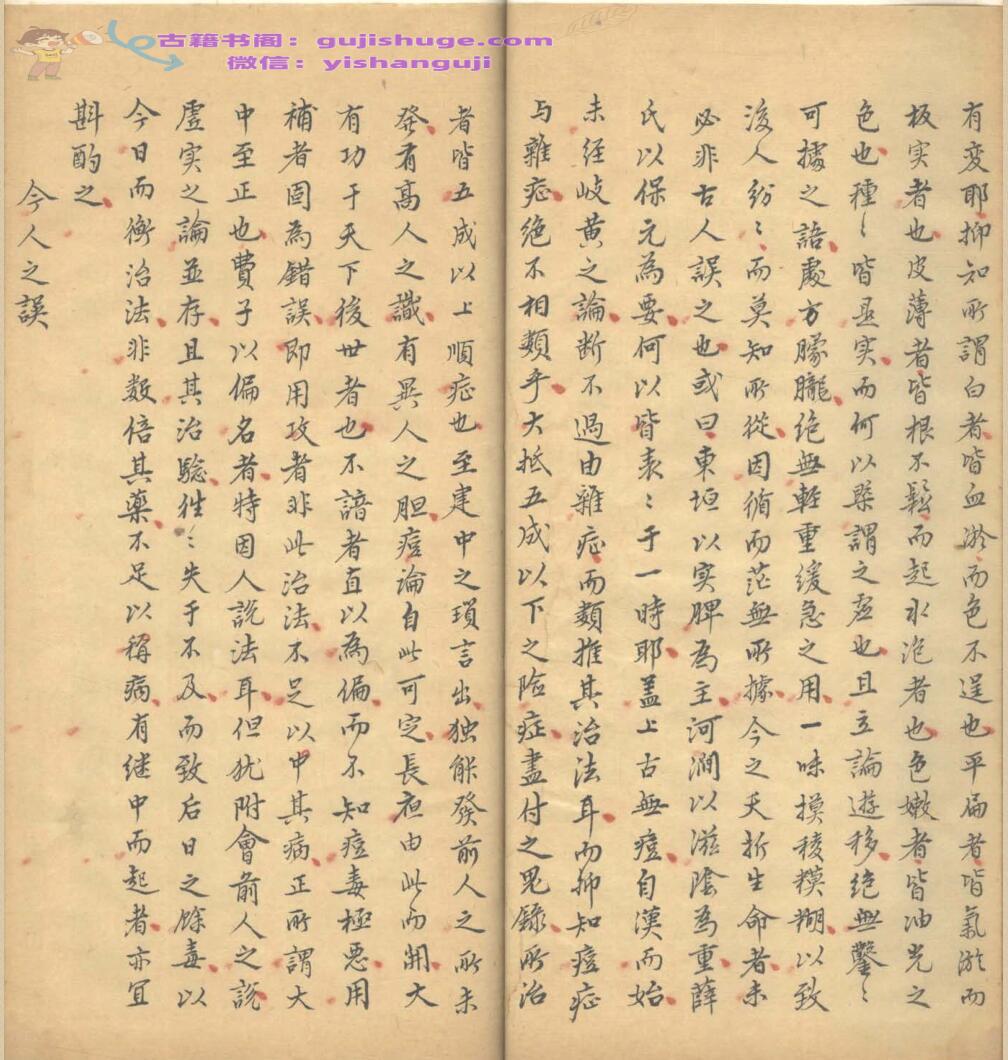 古籍书阁：gujishuge.com
微信：yishanguji
有变耶抑知所謂白者皆血淤而色不逞也平扁者皆氣淤而
板实者也皮薄者皆根不鬆而起水泡者也色嫩者皆油光之
色也種〻皆是实而何以槩謂之虚也且立論遊移絶無鑿〻
可據之語處方朦朧絶無輕重缓急之用一味摸稜糢糊以致
後人紛〻而莫知所從因循而茫無所據今之夭折生命者未
必非古人誤之也或曰東垣以实脾為主河澗以滋陰為重薛
氏以保元為要何以皆表〻于一時耶盖上古無痘自漢而始
未经岐黄之論断不過由雜症而類推其治法耳而抑知痘症
与雜症绝不相類乎大抵五成以下之险症盡付之鬼錄所治
者皆五成以上順症也至建中之瑣言出独能發前人之所未
發有高人之識有異人之胆痘論自此可定長夜由此而開大
有功于天下後世者也不諳者直以為偏而不知痘毒極恶用
補者固為錯誤即用攻者非此治法不足以中其病正所謂大
中至正也費子以偏名者特因人説法耳但犹附會前人之説
虚实之論並存且其治騐徃〻失于不及而致后日之餘毒以
今日而衡治法非数倍其藥不足以稱病有继中而起者亦宜
斟酌之
今人之誤